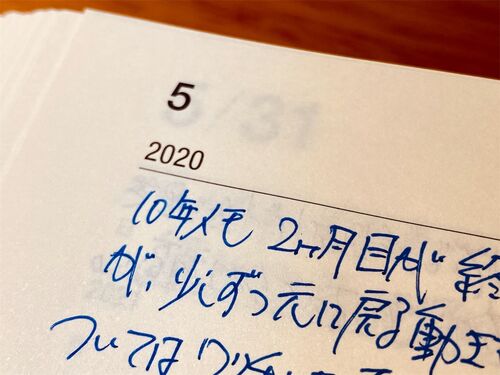 5
5/31
2020
10年メモ 2ヶ月目が
が、少しずつ元に戻る動き
ついては